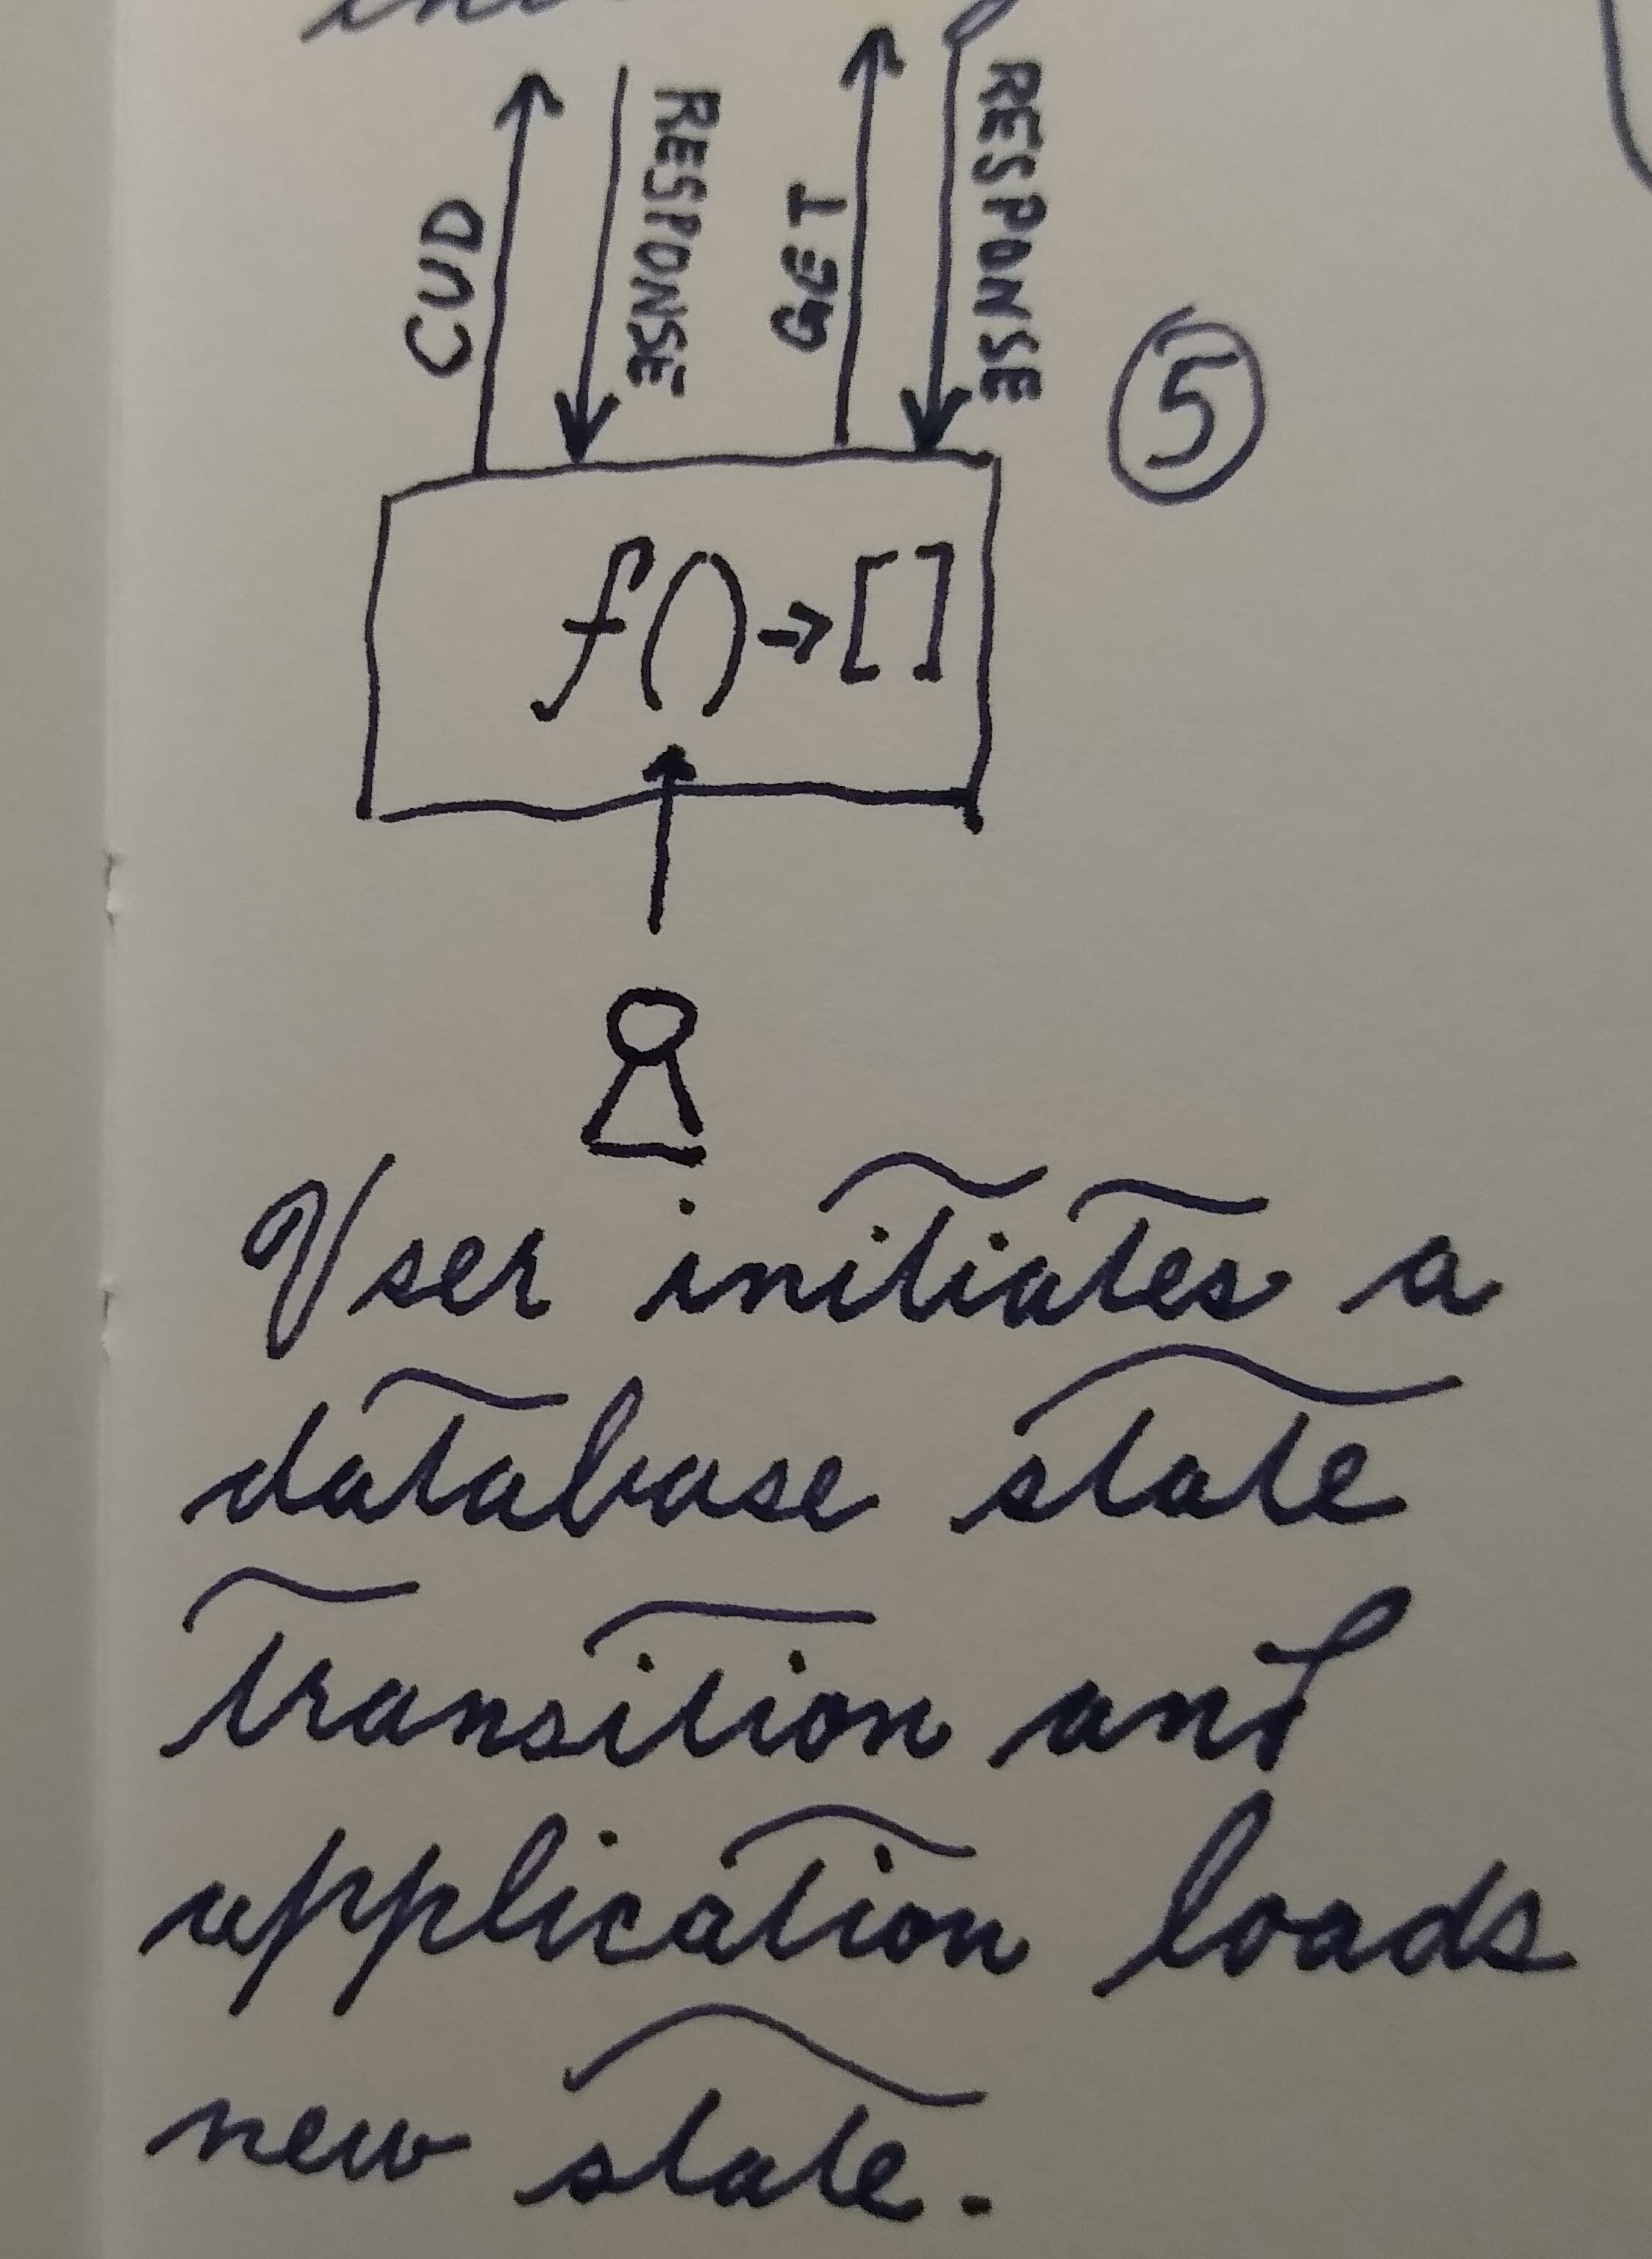 CUD
RESPONSE
GET
RESPONSE
5
f()→[]
User initiates a
database state
transition and
application loads
new state.